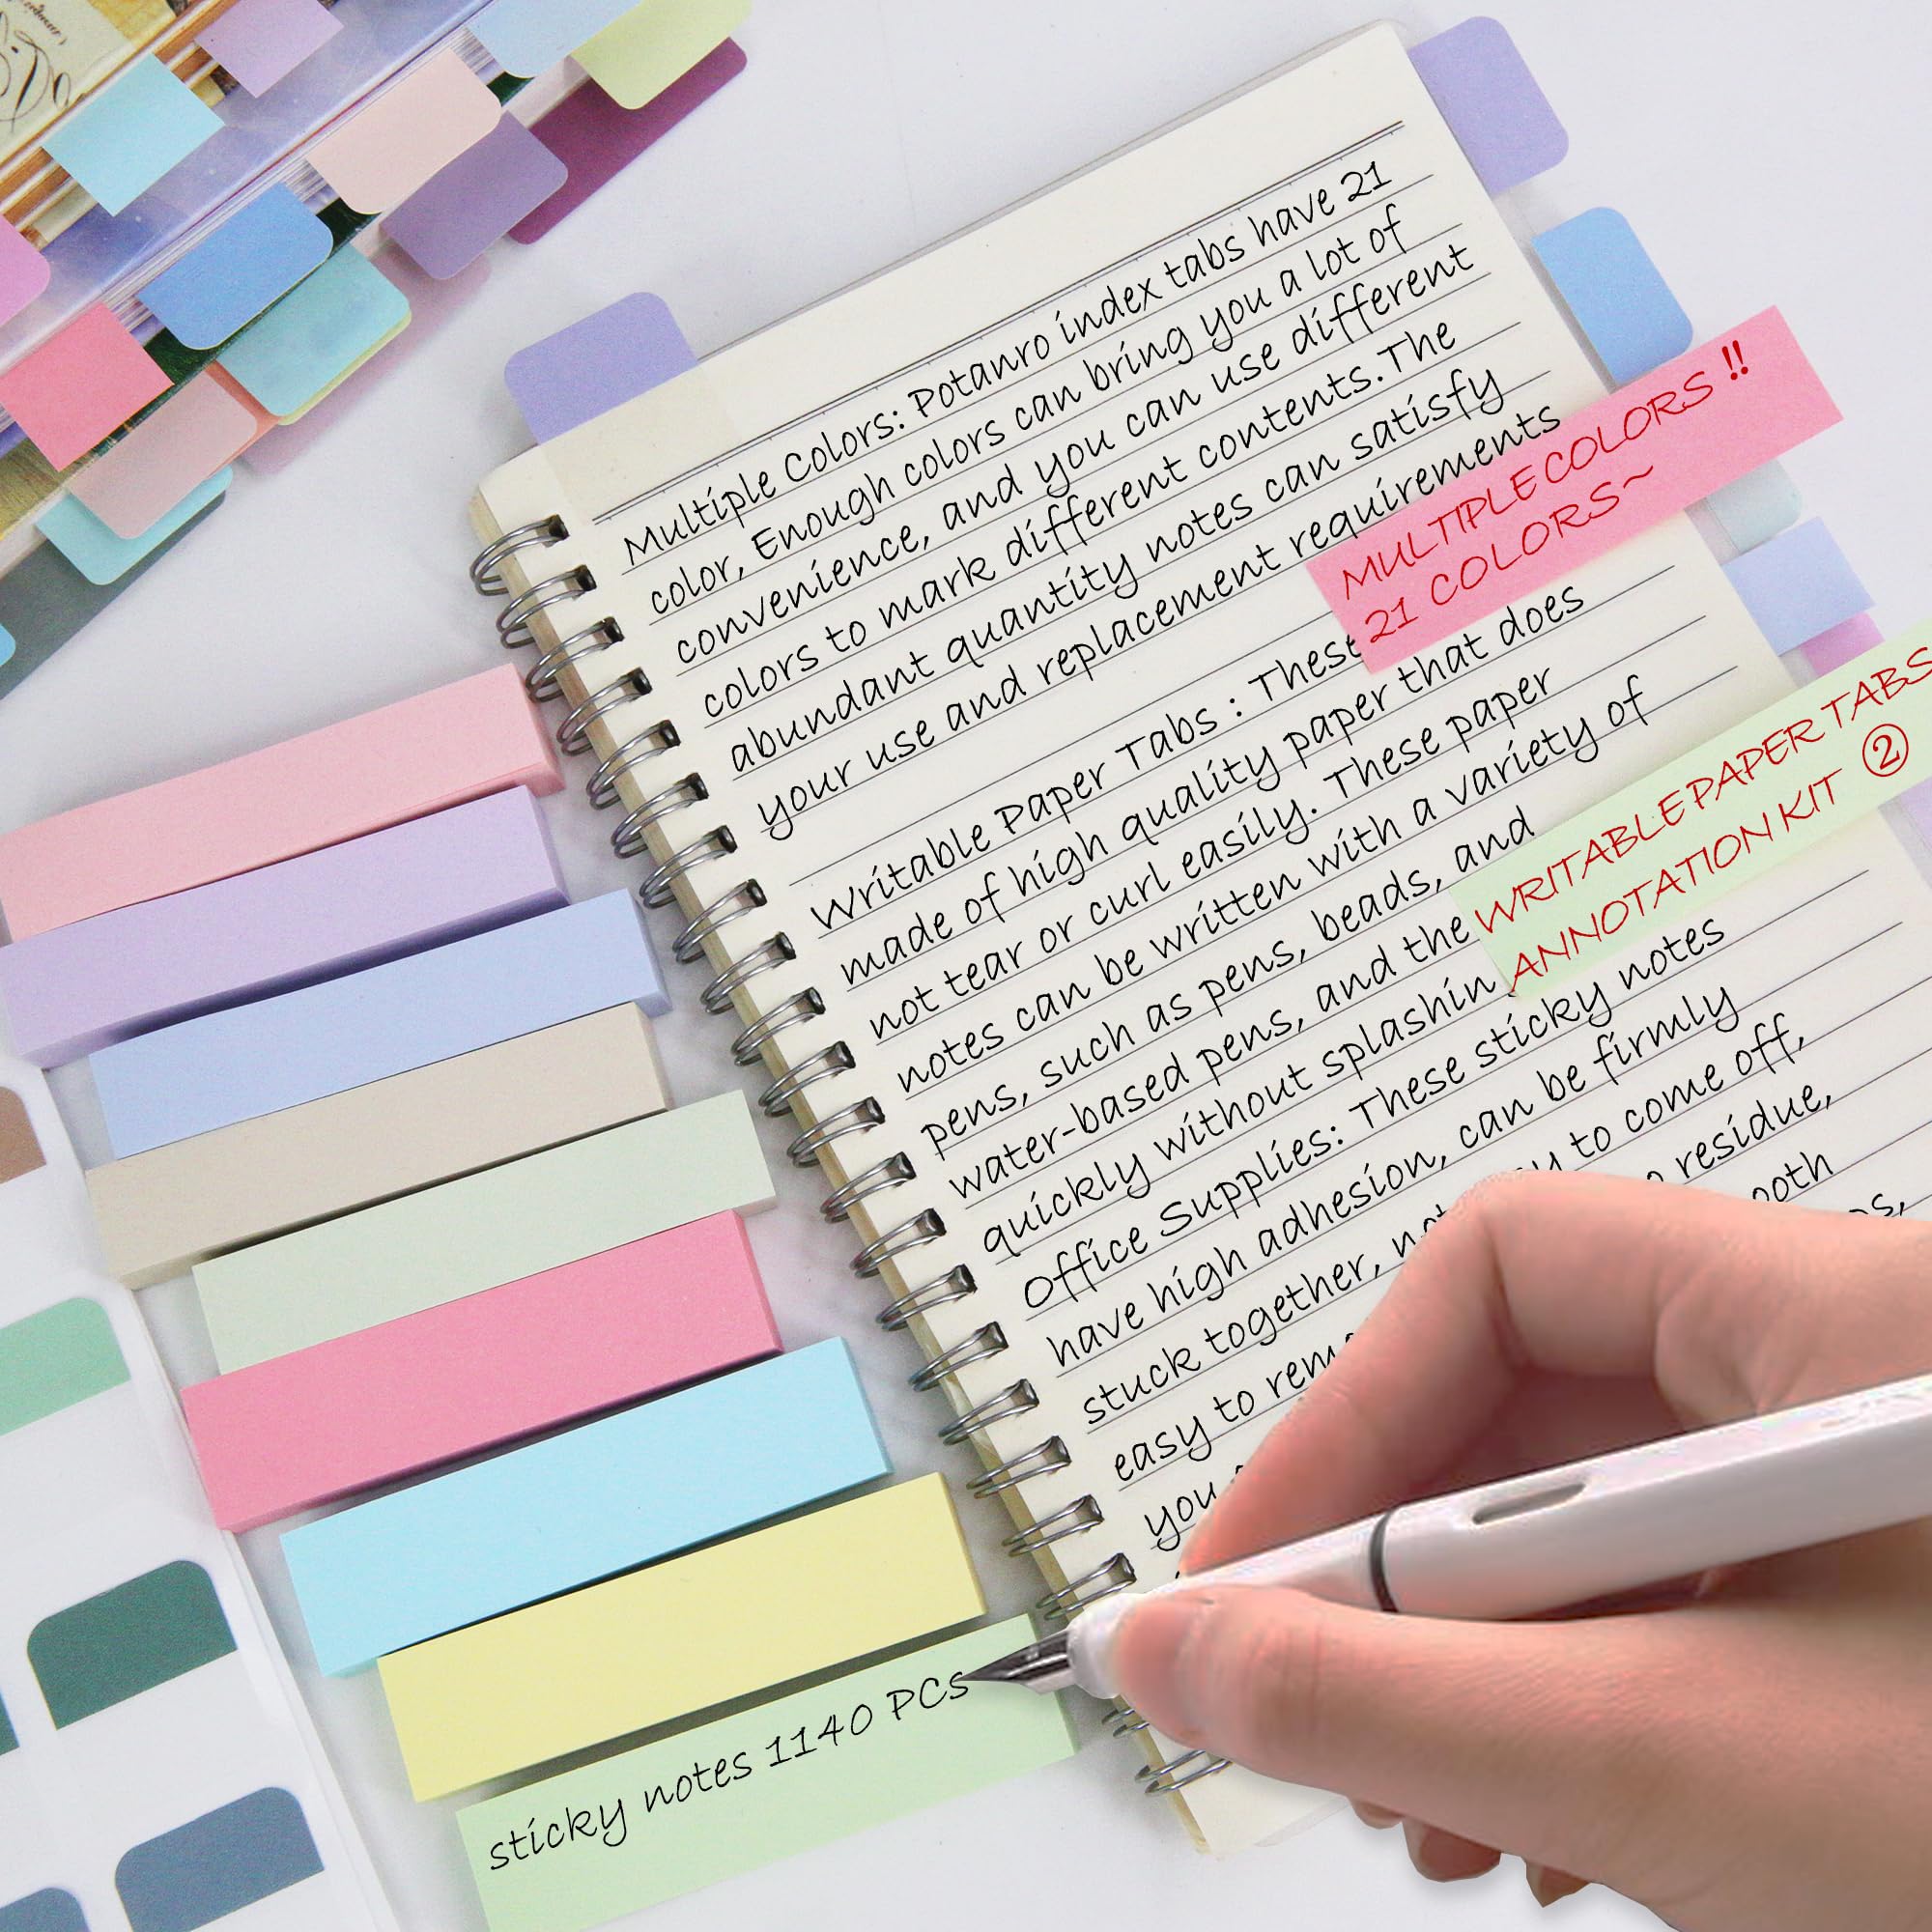 Multiple Colors: Potanro index tabs have 21
color, Enough colors can bring you a lot of
convenience, and you can use different
colors to mark different contents. The
abundant quantity notes can satisfy
your use and replacement requirements
MULTIPLE COLORS !!
21 COLORS~
Writable Paper Tabs : These
made of high quality paper that does
not tear or curl easily. These paper
notes can be written with a variety of
pens, such as pens, beads, and
water-based pens, and the
quickly without splashin
WRITABLE PAPER TABS
ANNOTATION KIT ②
Office Supplies: These sticky notes
have high adhesion, can be firmly
stuck together, not to come off,
easy to residue,
you
sticky notes 1140 PCs